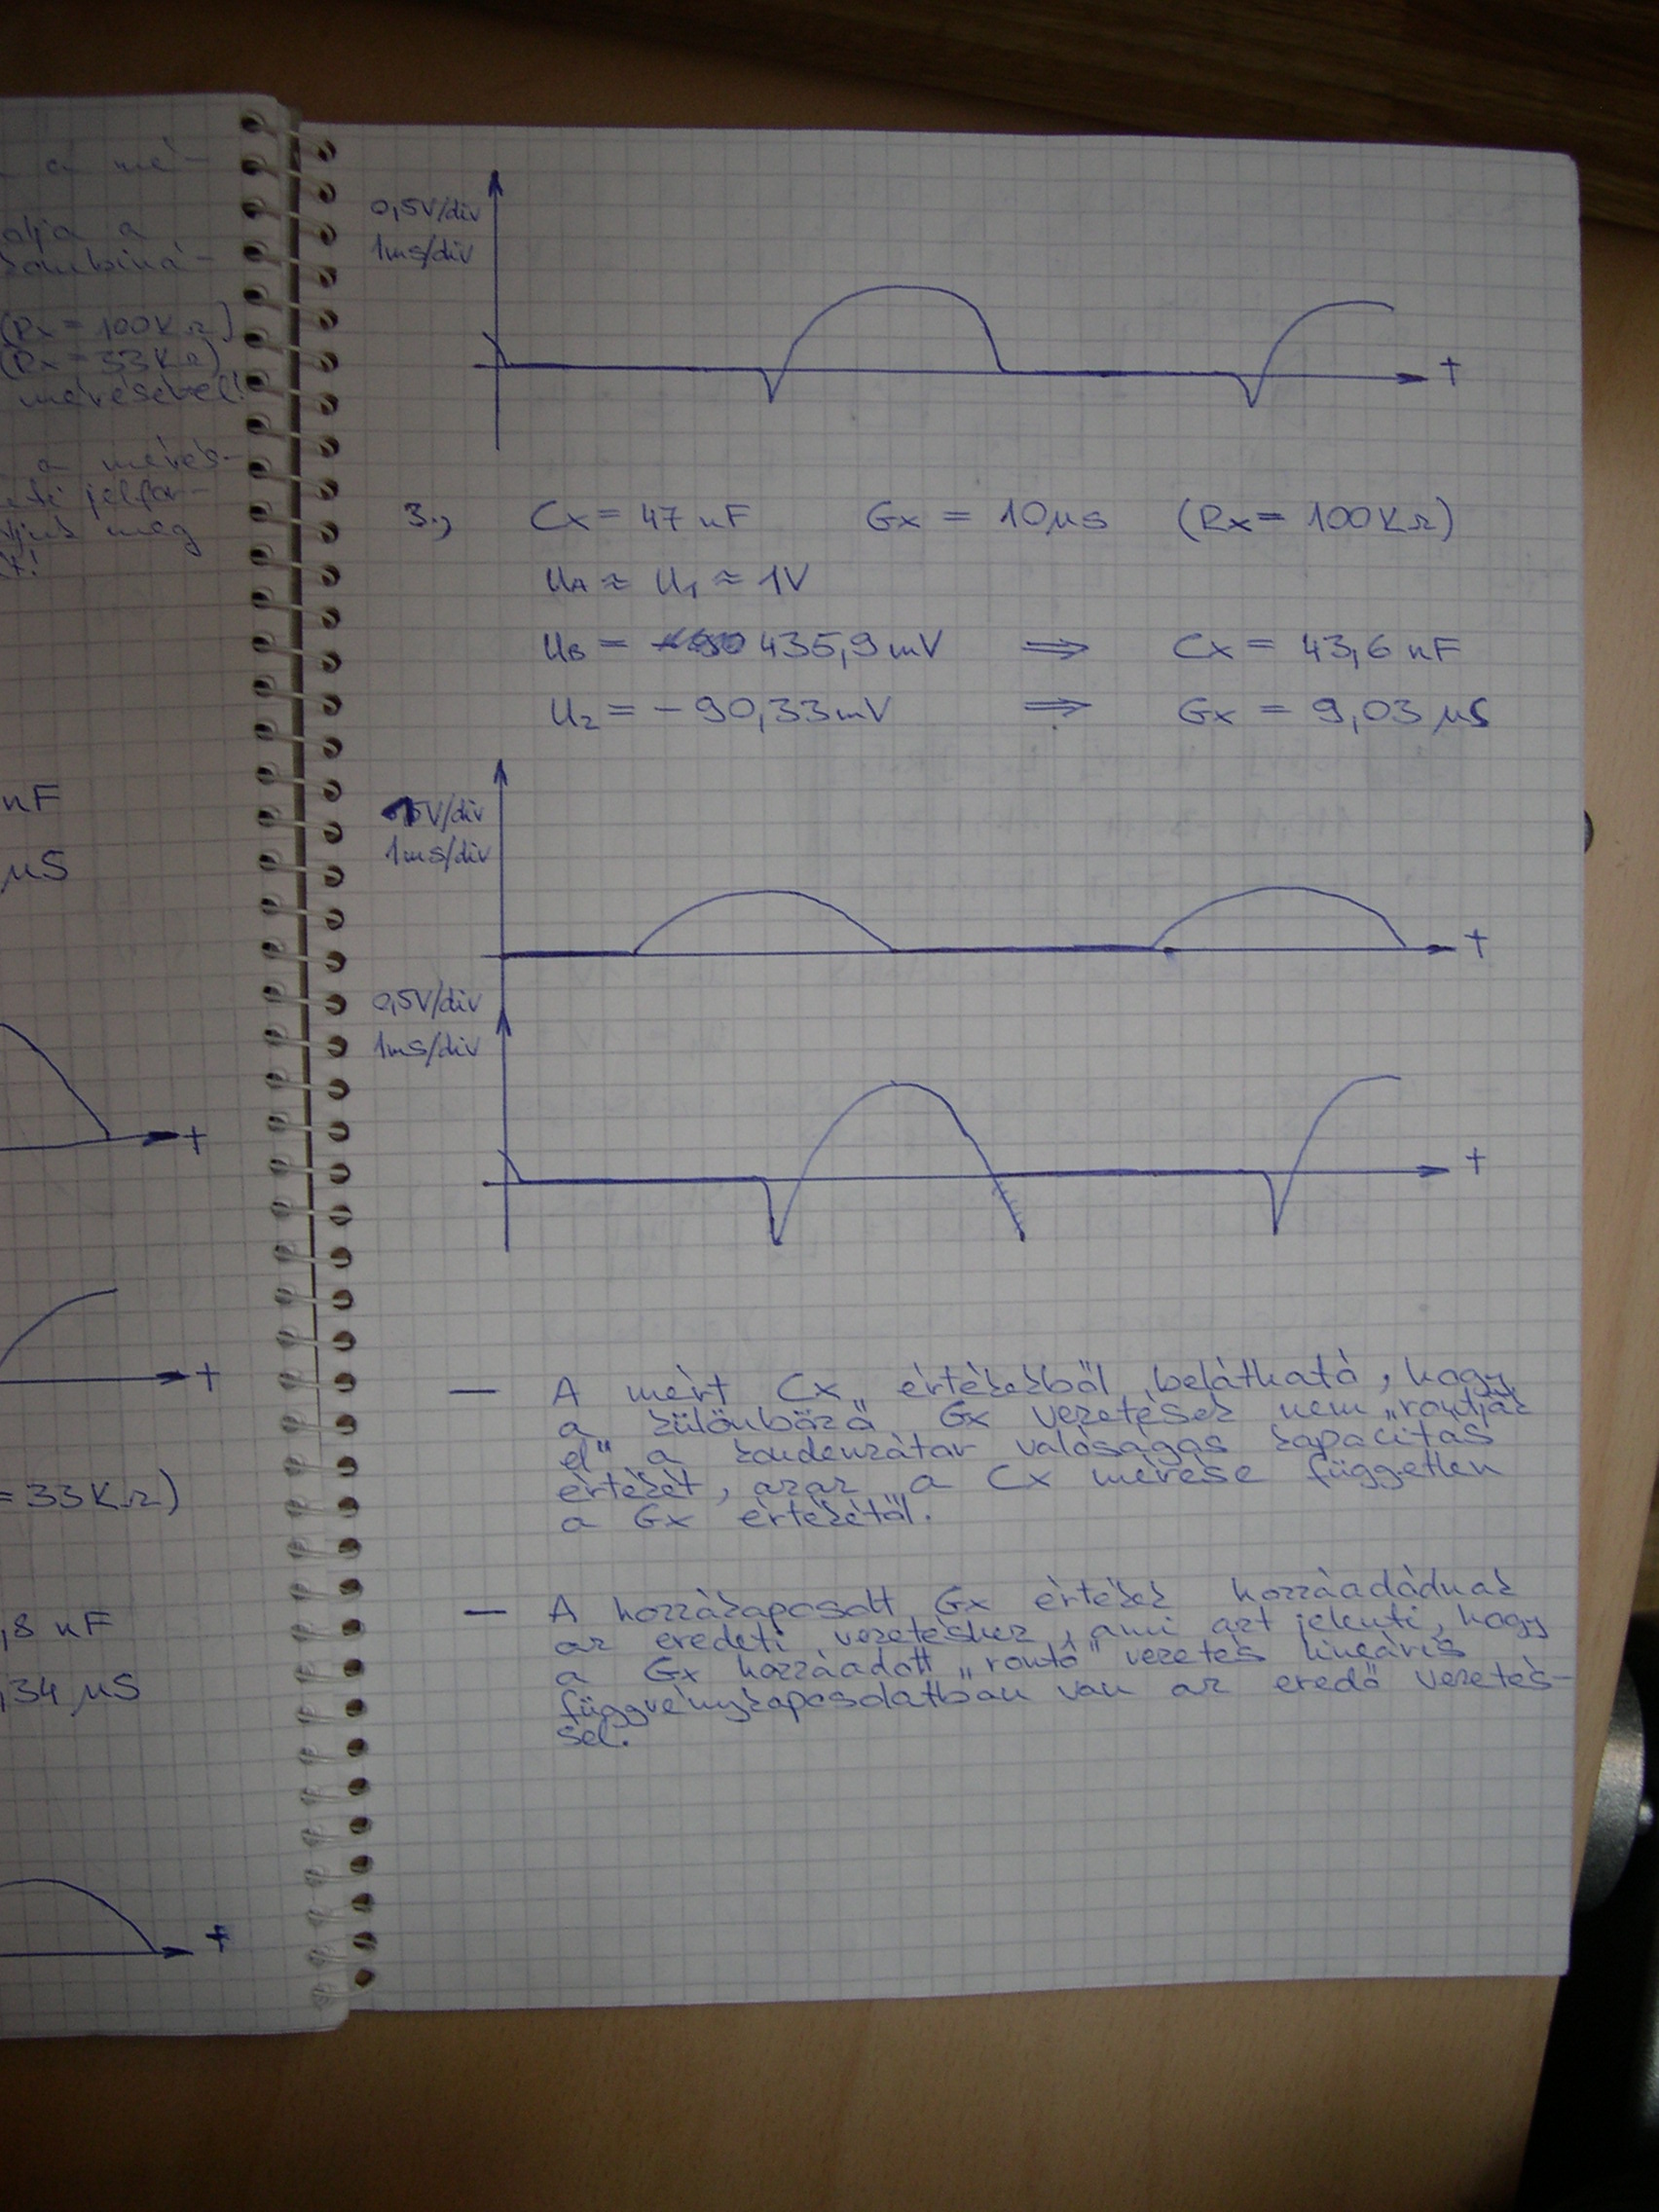 a mé-
olja a
kombiná-
(Rx = 100KΩ)
(Rx = 33KΩ)
mérésével!
a mérés-
jelfor-
meg
nF
μS
t
t
=33KΩ)
,8 nF
,34 μS
t
0,5V/div
1ms/div
t
3.,  Cx = 47 nF  Gx = 10μs  (Rx = 100KΩ)
UA ≈ U1 ≈ 1V
UB = 435,9mV ⇒ Cx = 43,6 nF
U2 = -90,33mV ⇒ Gx = 9,03 μS
1V/div
1ms/div
t
0,5V/div
1ms/div
t
— A mért Cx értékekből belátható, hogy
a különböző Gx vezetések nem „rontják
el" a kondenzátor valóságos kapacitás
értékét, azaz a Cx mérése független
a Gx értékétől.
— A hozzákapcsolt Gx értékek hozzáadódnak
az eredeti vezetéshez, ami azt jelenti, hogy
a Gx hozzáadott „rontó" vezetés lineáris
függvénykapcsolatban van az eredő vezetés-
sel.